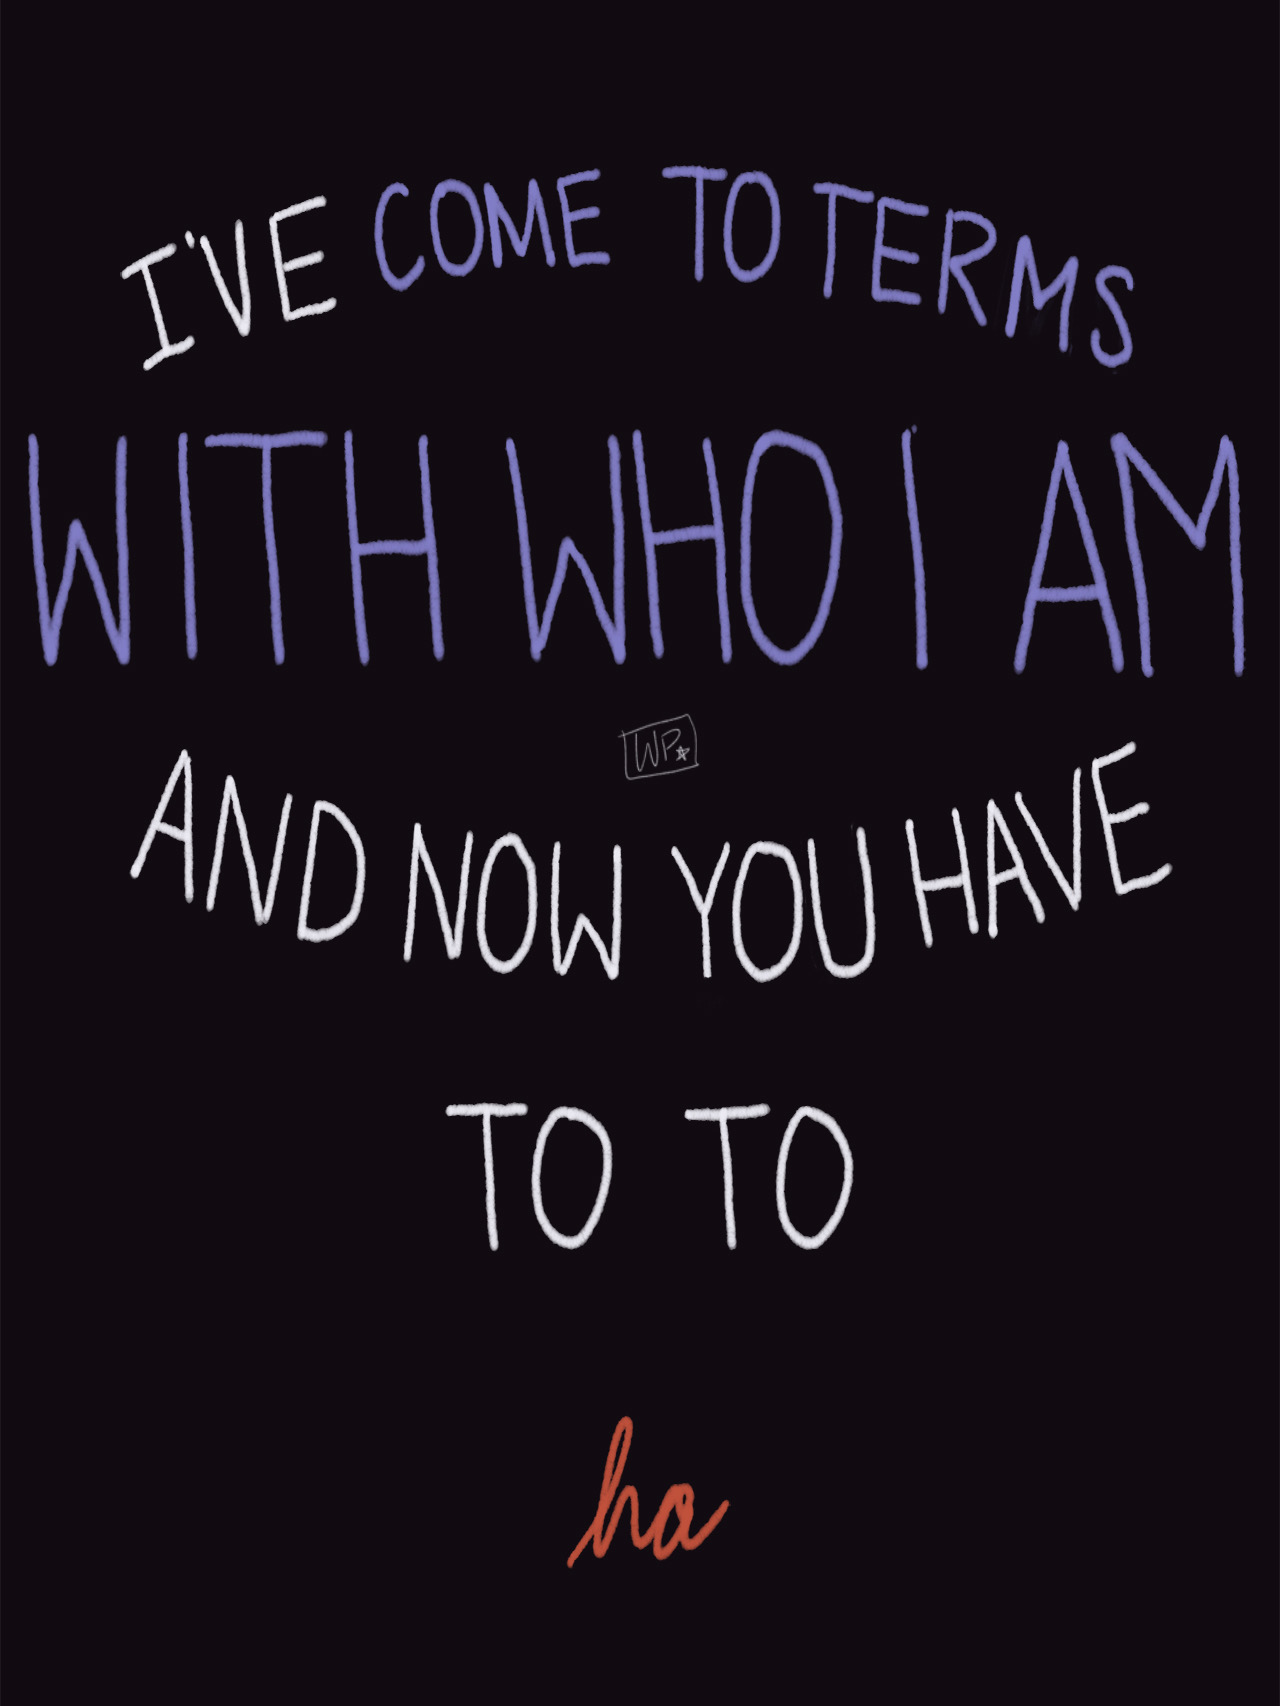 I'VE COME TO TERMS
WITH WHO I AM
WP
AND NOW YOU HAVE
TO TO
ha